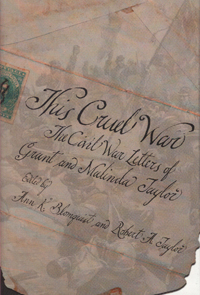 This Cruel War
The Civil War Letters of
Grant and Malinda Taylor
Edited by
Ann K. Blomquist and Robert A. Taylor